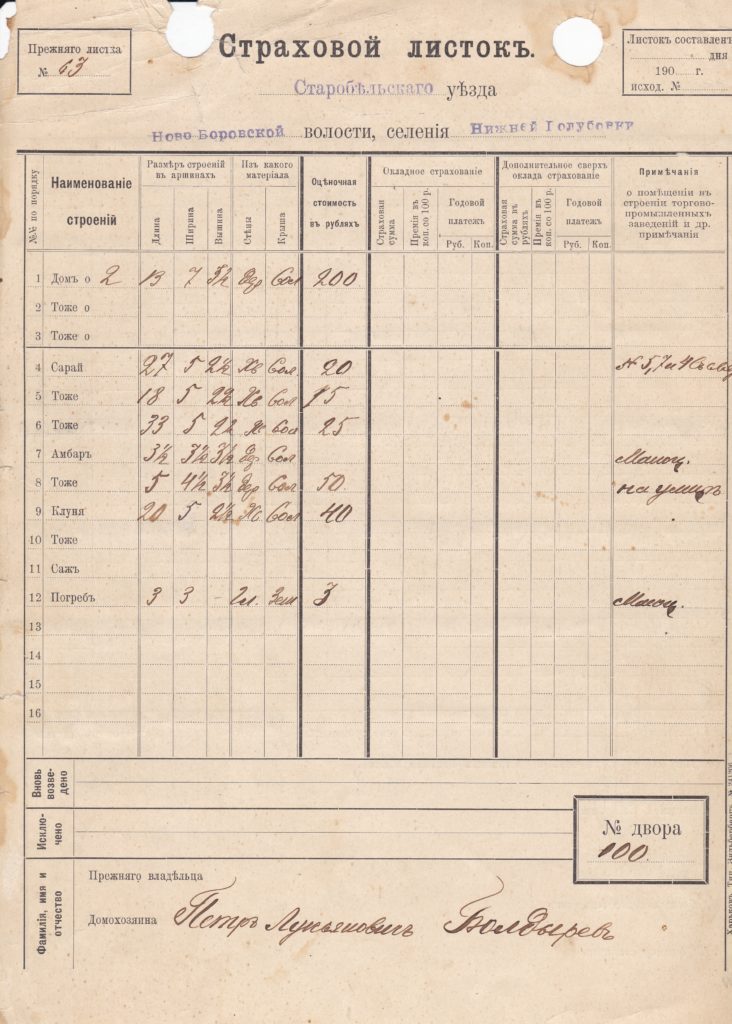 Прежняго листка
№ 63
Страховой листокъ.
Старобѣльскаго уѣзда
Ново Боровской волости, селенія Нижней Голубовки
Листокъ составленъ
дня
190 г.
исход. №
№№ по порядку
Наименованіе строеній
Размѣръ строеній въ аршинахъ
Длина
Ширина
Вышина
Изъ какого матеріала
Стѣны
Крыша
Оцѣночная стоимость въ рубляхъ
Окладное страхованіе
Страховая сумма
Премія въ коп. со 100 р.
Годовой платежъ
Руб. Коп.
Дополнительное сверхъ оклада страхованіе
Страховая сумма въ рубляхъ
Премія въ коп. со 100 р.
Годовой платежъ
Руб. Коп.
Примѣчанія
о помѣщеніи въ строеніи торгово-промышленныхъ заведеній и др. примѣчанія
1 Домъ о 2 13 7 3½ Дер Сол 200
2 Тоже о
3 Тоже о
4 Сарай 27 5 2½ Хв Сол. 20 № 5, 7 и 4
5 Тоже 18 5 2½ Хв Сол 15
6 Тоже 33 5 2½ Хв Сол 25
7 Амбаръ 3½ 3½ 3½ Дер Сол
8 Тоже 5 4½ 3½ Дер Сол 50 на
9 Клуня 20 5 2½ Хв Сол 40
10 Тоже
11 Сажъ
12 Погребъ 3 3 - Гл. Зем 3
13
14
15
16
Вновь возведено
Исключено
№ двора
100
Фамилія, имя и отчество
Прежняго владѣльца
Домохозяина Петръ Лукьяновичъ Болдыревъ